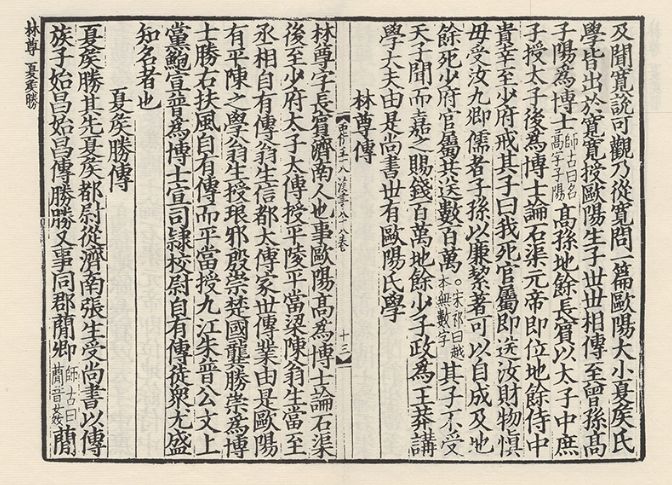 及聞寬說可觀乃從寬問一篇歐陽大小夏矦氏
學皆出於寬寬授歐陽生子世世相傳至曾孫髙
子陽為博士師古曰名髙字子陽髙孫地餘長賓以太子中庶
子授太子後為博士論石渠元帝即位地餘侍中
貴幸至少府戒其子曰我死官屬即送汝財物慎
毋受汝九卿儒者子孫以廉絜著可以自成及地
餘死少府官屬共送數百萬○宋祁曰越本無數字其子不受
天子聞而嘉之賜錢百萬地餘少子政為王莽講
學大夫由是尚書世有歐陽氏學
林尊傳
十三
林尊字長賓濟南人也事歐陽髙為博士論石渠
後至少府太子太傅授平陵平當梁陳翁生當至
丞相自有傳翁生信都太傅家世傳業由是歐陽
有平陳之學翁生授琅邪殷崇楚國龔勝崇為博
士勝右扶風自有傳而平當授九江朱普公文上
黨鮑宣普為博士宣司隸校尉自有傳徒衆尤盛
知名者也
夏矦勝傳
夏矦勝其先夏矦都尉從濟南張生受尚書以傳
族子始昌始昌傳勝勝又事同郡蕳卿師古曰蕳音姦蕳
林尊 夏矦勝